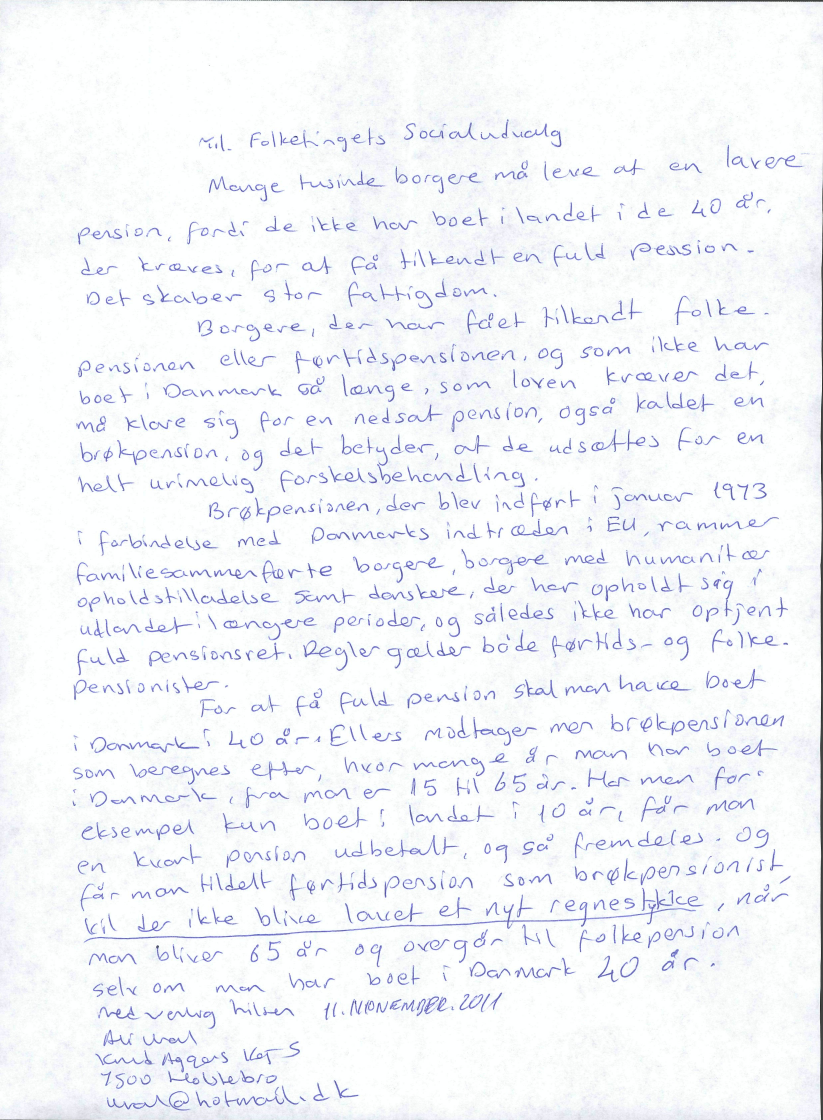 Til. Folketingets Socialudvalg
Mange tusinde borgere må leve af en lavere
pension, fordi de ikke har boet i landet i de 40 år,
der kræves, for at få tilkendt en fuld pession.
Det skaber stor fattigdom.
Borgere, der har fået tilkendt folke-
pensionen eller førtidspensionen, og som ikke har
boet i Danmark så længe, som loven kræver det,
må klare sig for en nedsat pension, også kaldet en
brøkpension, og det betyder, at de udsættes for en
helt urimelig forskelsbehandling.
Brøkpensionen, der blev indført i januar 1973
i forbindelse med Danmarks indtræden i EU, rammer
familiesammenførte borgere, borgere med humanitær
opholdstilladelse samt danskere, der har opholdt sig i
udlandet i længere perioder, og således ikke har optjent
fuld pensionsret. Regler gælder både førtids- og folke-
pensionister.
For at få fuld pension skal man have boet
i Danmark i 40 år. Ellers modtager men brøkpensionen
som beregnes efter, hvor mange år man har boet
i Danmark, fra man er 15 til 65 år. Har man for
eksempel kun boet i landet i 10 år, får man
en kvart pension udbetalt, og så fremdeles. Og
får man tildelt førtidspension som brøkpensionist,
vil der ikke blive lavet et nyt regnestykke, når
man bliver 65 år og overgår til folkepension
selv om man har boet i Danmark 40 år.
Med venlig hilsen 11. NOVEMBER. 2011
Ali Ural
Knud Aggers Vej 5
7500 Holstebro
ural@hotmail.dk